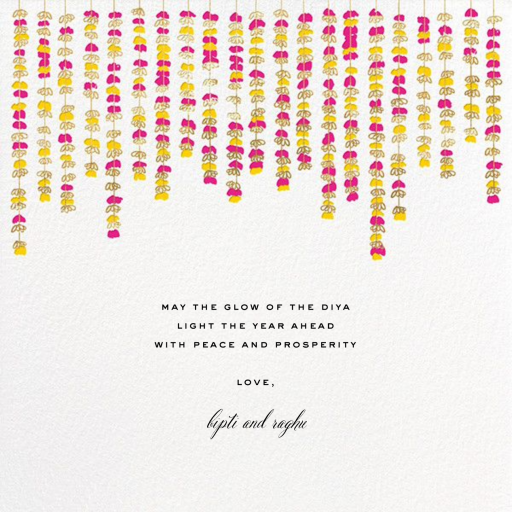 MAY THE GLOW OF THE DIYA
LIGHT THE YEAR AHEAD
WITH PEACE AND PROSPERITY
LOVE,
bipti and raghu